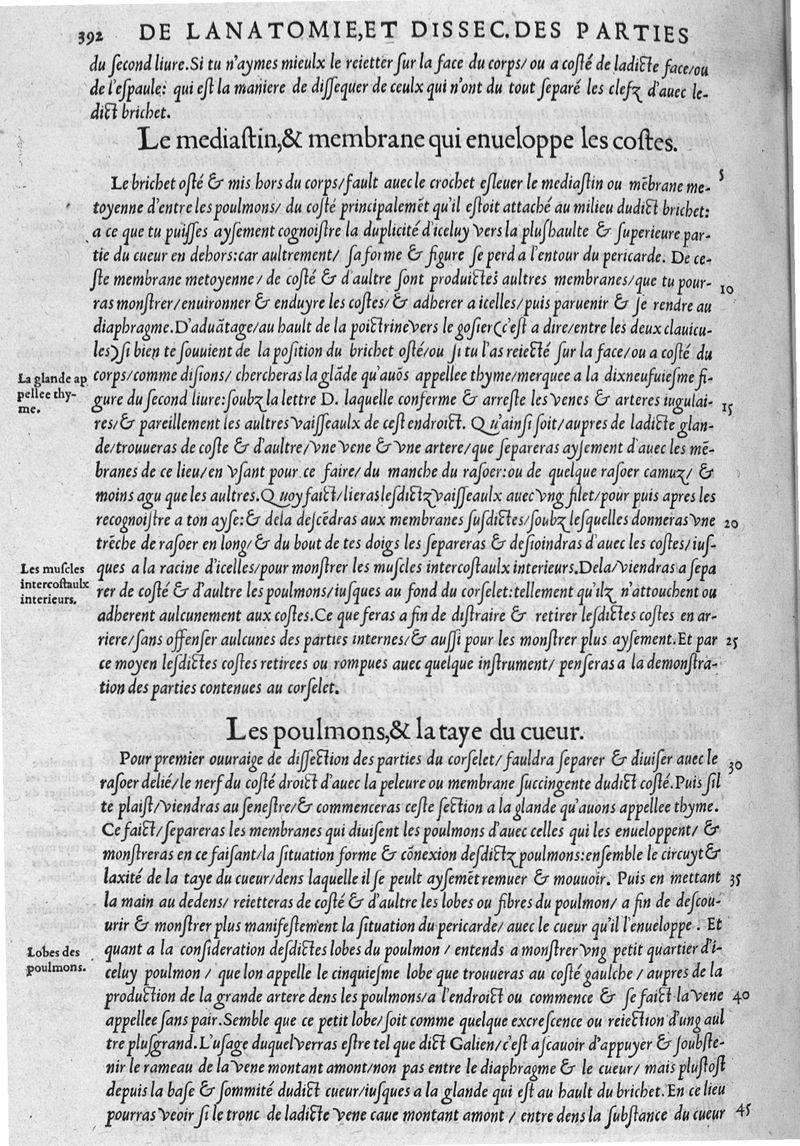 392 DE LANATOMIE, ET DISSEC. DES PARTIES
du ſecond liure. Si tu n'aymes mieulx le reietter ſur la face du corps/ ou a coſté de ladicte face/ou
de l'eſpaule: qui eſt la maniere de diſſequer de ceulx qui n'ont du tout ſeparé les clefz d'auec le-
dict brichet.
Le mediaſtin,& membrane qui enueloppe les coſtes.
Le brichet oſté & mis hors du corps/fault auec le crochet eſleuer le mediaſtin ou mēbrane me- 5
toyenne d'entre les poulmons/ du coſté principalemēt qu'il eſtoit attaché au milieu dudict brichet:
a ce que tu puiſſes ayſement cognoiſtre la duplicité d'iceluy vers la pluſhaulte & ſuperieure par-
tie du cueur en dehors: car aultrement/ ſa forme & figure ſe perd a l'entour du pericarde. De ce-
ſte membrane metoyenne/ de coſté & d'aultre ſont produictes aultres membranes/que tu pour-
ras monſtrer/enuironner & enduyre les coſtes/& adherer a icelles/puis paruenir & ſe rendre au 10
diaphragme. D'aduātage/au hault de la poictrine vers le goſier (c'eſt a dire/entre les deux clauicu-
les) ſi bien te ſouuient de la poſition du brichet oſté/ou ſi tu l'as reiecté ſur la face/ou a coſté du
La glande ap
pellee thy-
me.
corps/comme diſions/ chercheras la glāde qu'auōs appellee thyme/merquee a la dixneufuieſme fi-
gure du ſecond liure: ſoubz la lettre D. laquelle conferme & arreſte les venes & arteres iugulai-
res/& pareillement les aultres vaiſſeaulx de ceſt endroict. Qu'ainſi ſoit/aupres de ladicte glan- 15
de/trouueras de coſte & d'aultre/vne vene & vne artere/que ſepareras ayſement d'auec les mē-
branes de ce lieu/en vſant pour ce faire/ du manche du raſoer: ou de quelque raſoer camuz/ &
moins agu que les aultres. Quoy faict/lieras leſdictz vaiſſeaulx auec vng filet/pour puis apres les
recognoiſtre a ton ayſe: & dela deſcēdras aux membranes ſuſdictes/ſoubz leſquelles donneras vne 20
trēche de raſoer en long/& du bout de tes doigs les ſepareras & deſioindras d'auec les coſtes/iuſ-
Les muſcles
intercoſtaulx
interieurs.
ques a la racine d'icelles/pour monſtrer les muſcles intercoſtaulx interieurs. Dela/viendras a ſepa
rer de coſté & d'aultre les poulmons/iuſques au fond du corſelet: tellement qu'ilz n'attouchent ou
adherent aulcunement aux coſtes. Ce que feras a fin de diſtraire & retirer leſdictes coſtes en ar-
riere/ſans offenſer aulcunes des parties internes/& auſſi pour les monſtrer plus ayſement. Et par 25
ce moyen leſdictes coſtes retirees ou rompues auec quelque inſtrument/ penſeras a la demonſtra-
tion des parties contenues au corſelet.
Les poulmons,& la taye du cueur.
Pour premier ouuraige de diſſection des parties du corſelet/ fauldra ſeparer & diuiſer auec le 30
raſoer delié/le nerf du coſté droict d'auec la peleure ou membrane ſuccingente dudict coſté. Puis ſil
te plaiſt/viendras au ſeneſtre/& commenceras ceſte ſection a la glande qu'auons appellee thyme.
Ce faict/ſepareras les membranes qui diuiſent les poulmons d'auec celles qui les enueloppent/ &
monſtreras en ce faiſant/la ſituation forme & cōnexion deſdictz poulmons: enſemble le circuyt &
laxité de la taye du cueur/dens laquelle il ſe peult ayſemēt remuer & mouuoir. Puis en mettant 35
la main au dedens/ reietteras de coſté & d'aultre les lobes ou fibres du poulmon/ a fin de deſcou-
urir & monſtrer plus manifeſtement la ſituation du pericarde/ auec le cueur qu'il l'enueloppe. Et
Lobes des
poulmons.
quant a la conſideration deſdictes lobes du poulmon/ entends a monſtrer vng petit quartier d'i-
celuy poulmon/ que lon appelle le cinquieſme lobe que trouueras au coſté gaulche/ aupres de la
production de la grande artere dens les poulmons/a l'endroict ou commence & ſe faict la vene 40
appellee ſans pair. Semble que ce petit lobe/ſoit comme quelque excreſcence ou reiection d'ung aul
tre pluſgrand. L'uſage duquel verras eſtre tel que dict Galien/c'eſt aſcauoir d'appuyer & ſoubſte-
nir le rameau de la vene montant amont/non pas entre le diaphragme & le cueur/ mais pluſtoſt
depuis la baſe & ſommité dudict cueur/iuſques a la glande qui eſt au hault du brichet. En ce lieu
pourras veoir ſi le tronc de ladicte vene caue montant amont/ entre dens la ſubſtance du cueur 45